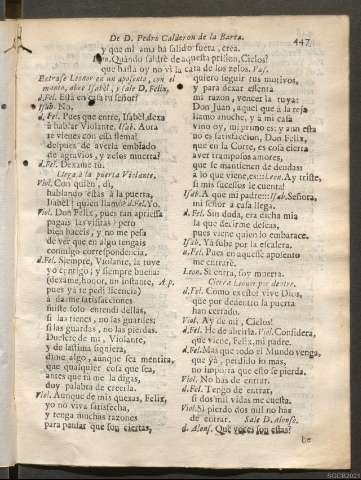 De D. Pedro Calderon de la Barca.
447
y que mi ama ha salido fuera, crea.
Leon. Quando saldrè de aquesta prision, Cielos?
que hasta oy no vi la cara de los zelos. Vase.
Entrase Leonor en un aposento, con el
manto, abre Isabèl, y sale D. Felix.
d. Fel. Està en casa tu señor?
Isab. No.
d. Fel. Pues que entre, Isabèl, dexa
à hablar Violante. Isab. Aora
te vienes con essa flema?
despues de averla embiado
de agravios, y zelos muerta?
d. Fel. Dexame tù.
Llega à la puerta Violante.
Viol. Con quien, dì,
hablando estàs à la puerta,
Isabèl? quien llamò? d. Fel. Yo.
Viol. Don Felix, pues tan apriessa
pagais las visitas? pero
bien haceis, y no me pesa
de vèr que en algo tengais
conmigo correspondencia.
d. Fel. Siempre, Violante, la tuve
yo contigo; y siempre buena:
(dexame, honor, un instante, Ap.
pues ya te pedì licencia)
à darme satisfacciones
fuiste solo entendì dellas,
si las tienes, no las guardes;
si las guardas, no las pierdas.
Duelete de mi, Violante,
y de lastima siquiera,
dime algo, aunque sea mentira,
que qualquier cosa que sea,
antes que tù me la digas,
doy palabra de creerla.
Viol. Aunque de mis quexas, Felix,
yo no viva satisfecha,
y tenga muchas razones
para pensar que son ciertas,
quiero seguir tus motivos,
y para dexar essenta
mi razon, vencer la tuya:
Don Juan, aquel que à la reja
llamò anoche, y à mi casa
vino oy, mi primo es; y aun esta
no es satisfaccion, Don Felix,
que en la Corte, es cosa cierta
aver tramposos amores,
que se mantienen de deudas:
à lo que viene, es::: Leon. Ay triste,
si mis sucessos le cuenta!
Isab. A que mi padre::: Isab. Señora,
mi señor à casa llega.
d. Fel. Sin duda, era dicha mia
la que decirme deseas,
pues viene quien lo embarace.
Isab. Yà sube por la escalera.
d. Fel. Pues en aqueste aposento
me entrarè.
Leon. Si entra, soy muerta.
Cierra Leonor por dentro.
d. Fel. Como es esto? vive Dios,
que por dedentro la puerta
han cerrado.
Viol. Ay de mi, Cielos!
d. Fel. He de abrirla. Viol. Considera,
que viene, Felix, mi padre.
d. Fel. Mas que todo el Mundo venga,
que yà, perdido lo mas,
no importa que esto se pierda.
Viol. No has de entrar.
d. Fel. Tengo de entrar,
si dos mil vidas me cuesta.
Viol. Si pierdo dos mil no has
de entrar. Sale D. Alonso.
d. Alons. Què voces son estas?
be